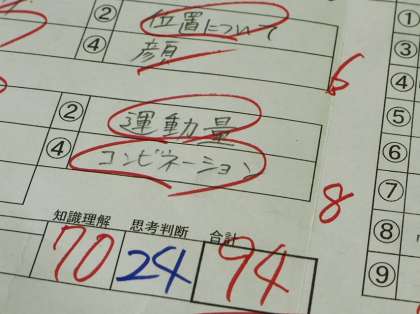 ② 位置について
④ 顔
6
② 運動量
④ コンビネーション
8
知識理解 思考判断 合計
70 24 94
①
②
③
④
⑤
⑥
⑦
⑧
⑨